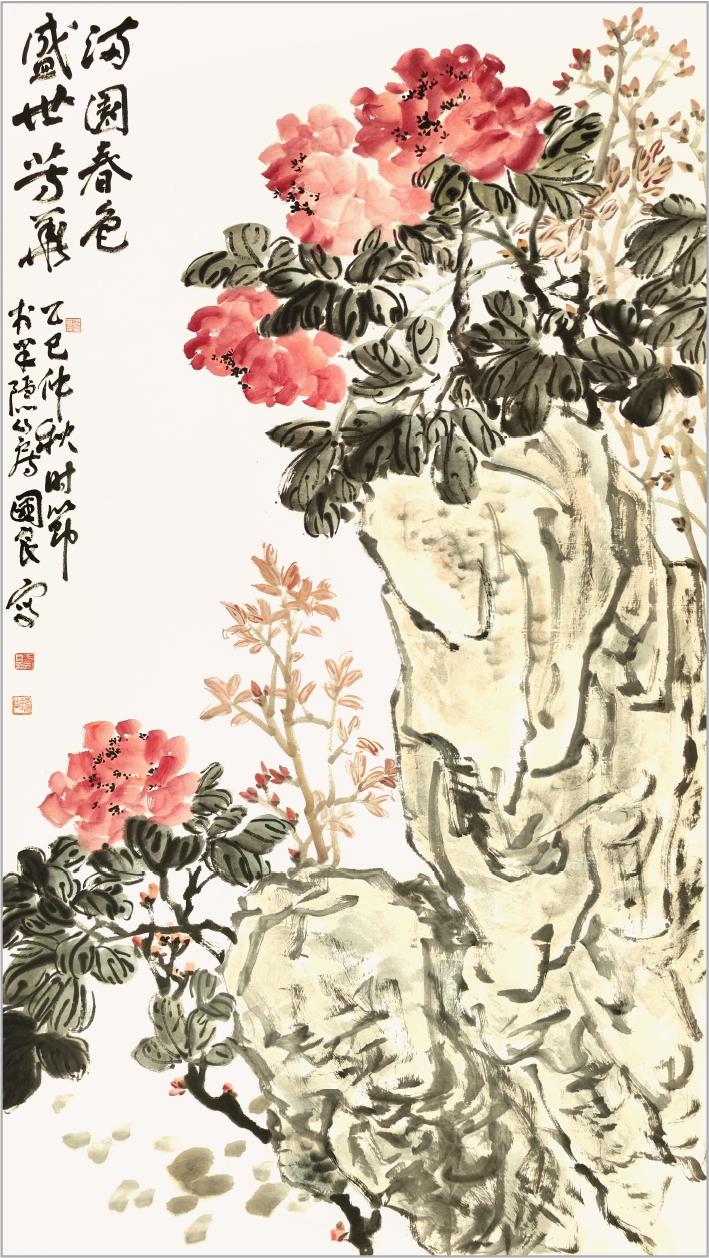 满園春色
盛世芳華
乙巳仲秋时節
於半隐山房 國民 寫